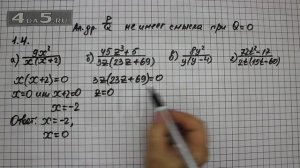 5terka.com
ГДЗ
Ал. др. P/Q не имеет смысла при Q=0
1.4.
а) 9x²/x(x+2) б) 45z³+5/3z(23z+69) в) 8y²/y(y-4) г) 72t²-17/2t(15t-60)
x(x+2)=0 3z(23z+69)=0
x=0 или x+2=0 z=0
x=-2
Ответ: x=-2;
x=0